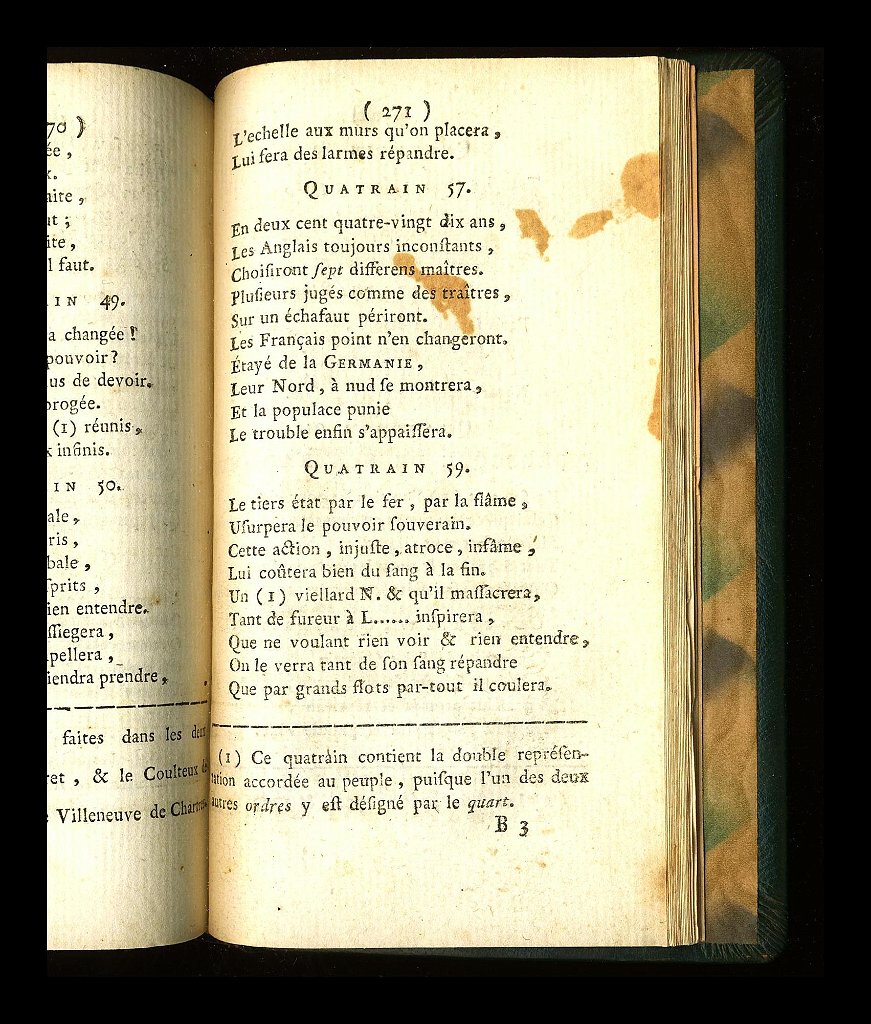 70 )
ée ,
x.
aite ,
ut ;
ite ,
l faut.
IN 49.
a changée !
pouvoir ?
us de devoir.
brogée.
(1) réunis,
x infinis.
IN 50.
ale ,
ris ,
bale ,
ſprits ,
ien entendre.
ſſiegera ,
pellera ,
iendra prendre ,
faites dans les deux
ret , & le Coulteux de
Villeneuve de Chartres.
( 271 )
L'echelle aux murs qu'on placera ,
Lui ſera des larmes répandre.
QUATRAIN 57.
En deux cent quatre-vingt dix ans ,
Les Anglais toujours inconſtants ,
Choiſiront ſept differens maîtres.
Pluſieurs jugés comme des traîtres ,
Sur un échafaut périront.
Les Français point n'en changeront.
Étayé de la GERMANIE ,
Leur Nord , à nud ſe montrera ,
Et la populace punie
Le trouble enfin s'appaiſſera.
QUATRAIN 59.
Le tiers état par le fer , par la flâme ,
Uſurpera le pouvoir ſouverain.
Cette action , injuſte , atroce , infâme ,
Lui coûtera bien du ſang à la fin.
Un (1) viellard N. & qu'il maſſacrera ,
Tant de fureur à L...... inſpirera ,
Que ne voulant rien voir & rien entendre ,
On le verra tant de ſon ſang répandre
Que par grands flots par-tout il coulera.
(1) Ce quatràin contient la double repréſen-
tation accordée au peuple , puiſque l'un des deux
autres ordres y eſt déſigné par le quart.
B 3